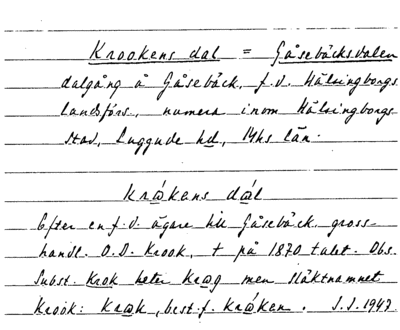 Krookens dal = Gåsebäcksdalen
dalgång å Gåsebäck, f.d. Hälsingborgs
landsförs., numera inom Hälsingborgs
stad, Luggude hd, Mhs län.
Kråkens dal
Efter en f.d. ägare till Gåsebäck, gross-
handl. O.D. Krook, † på 1870 talet. Obs.
Subst. krok heter krog men släktnamnet
Krook: Kråk, best.f. Kråken. J.J. 1947.